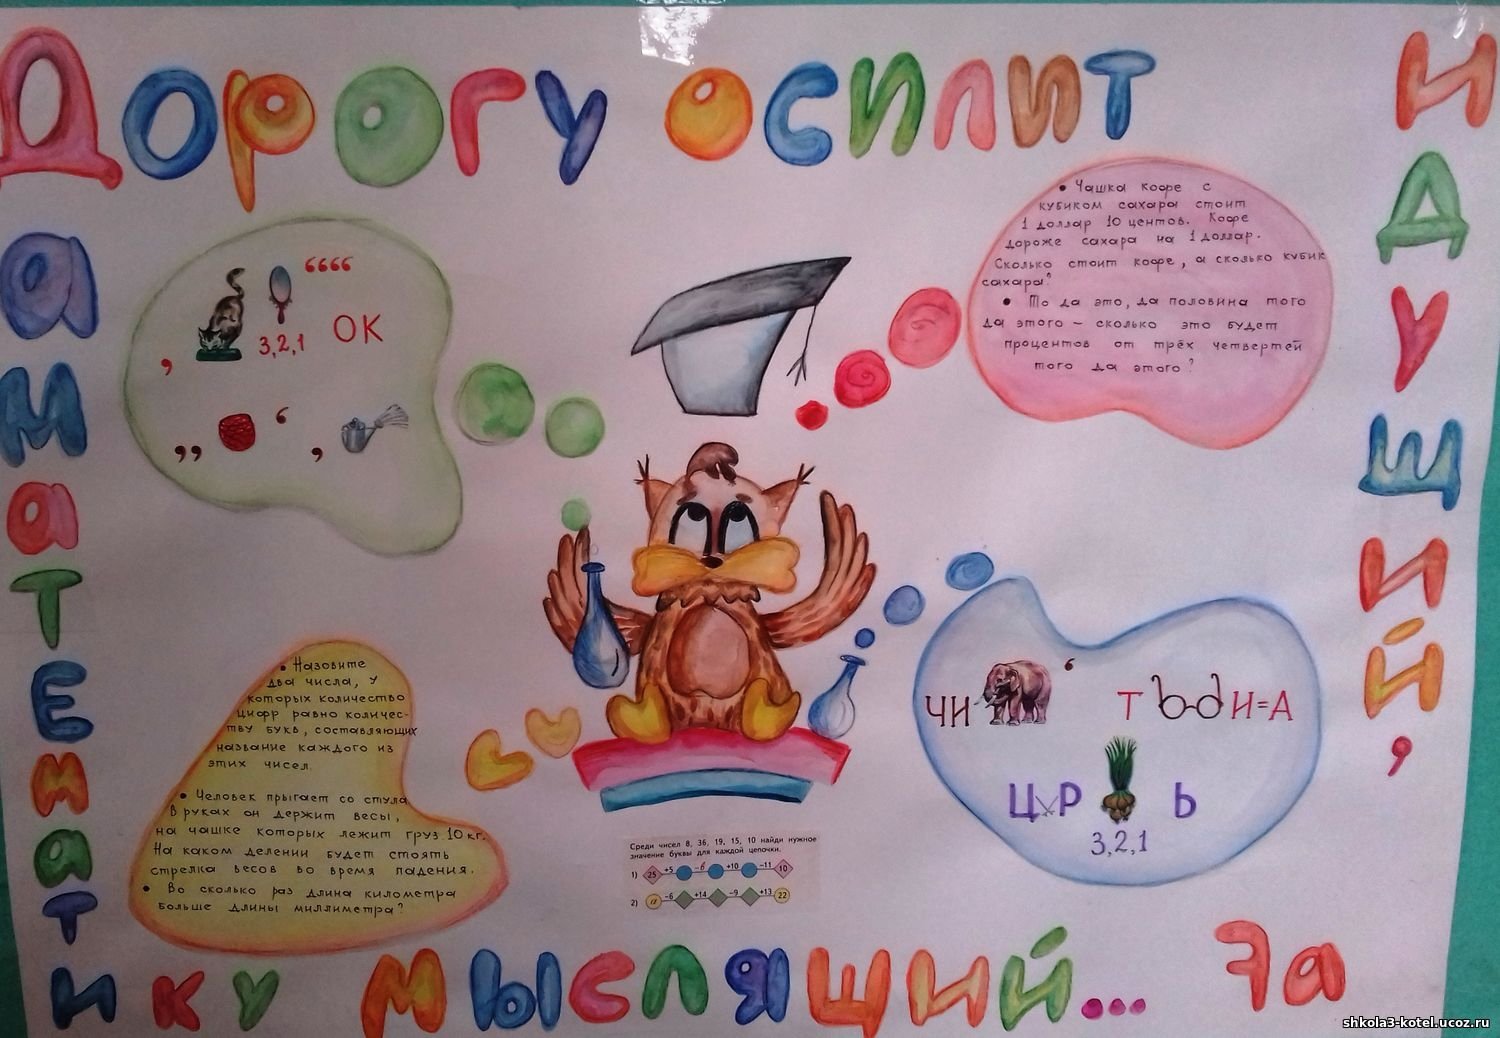 Дорогу осилит
идущий,
а
математику мыслящий... 7а
‘‘‘‘
,
3,2,1
ОК
,, ‘ ,
• Чашка кофе с
кубиком сахара стоит
1 доллар 10 центов. Кофе
дороже сахара на 1 доллар.
Сколько стоит кофе, а сколько кубик
сахара?
• То да это, да половина того
да этого – сколько это будет
процентов от трёх четвертей
того да этого?
• Назовите
два числа, у
которых количество
цифр равно количес-
тву букв, составляющих
название каждого из
этих чисел.
• Человек прыгает со стула
В руках он держит весы,
на чашке которых лежит груз 10 кг.
На каком делении будет стоять
стрелка весов во время падения.
• Во сколько раз длина километра
больше длины миллиметра?
ЧИ ‘ Т И=А
Ц Р Ь
3,2,1
Среди чисел 8, 36, 19, 15, 10 найди нужное
значение буквы для каждой цепочки.
1) 25 +5 –в +10 –11 10
2) а –6 +14 –9 +13 22
shkola3-kotel.ucoz.ru